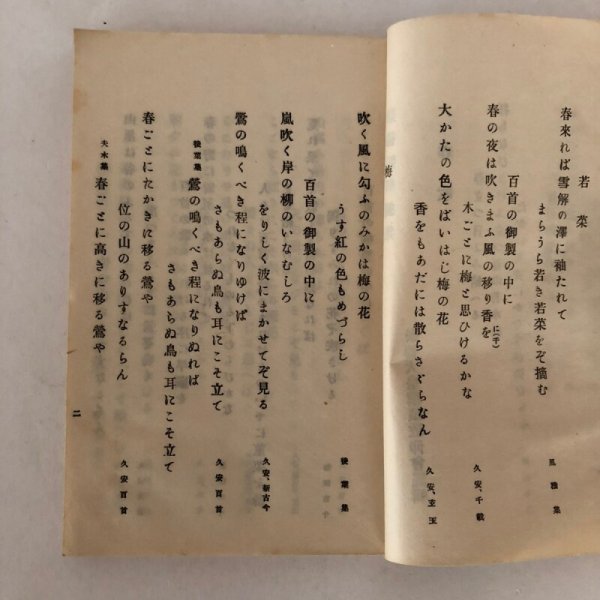 若菜
春來れば雪解の澤に袖たれて
まだうら若き若菜をぞ摘む
風雅集
百首の御製の中に
春の夜は吹きまふ風の移り香を
木ごとに梅と思ひけるかな
に(千)
久安、千載
大かたの色をばいはじ梅の花
香をもあだには散らさざらなん
久安、玄玉
梅
吹く風に匂ふのみかは梅の花
うす紅の色もめづらし
後葉集
百首の御製の中に
嵐吹く岸の柳のいなむしろ
をりしく波にまかせてぞ見る
久安、新古今
鶯の鳴くべき程になりゆけば
さもあらぬ鳥も耳にこそ立て
久安百首
後葉集
鶯の鳴くべき程になりぬれば
さもあらぬ鳥も耳にこそ立て
春ごとにたかきに移る鶯や
位の山のありすなるらん
久安百首
夫木集
春ごとに高きに移る鶯や
二